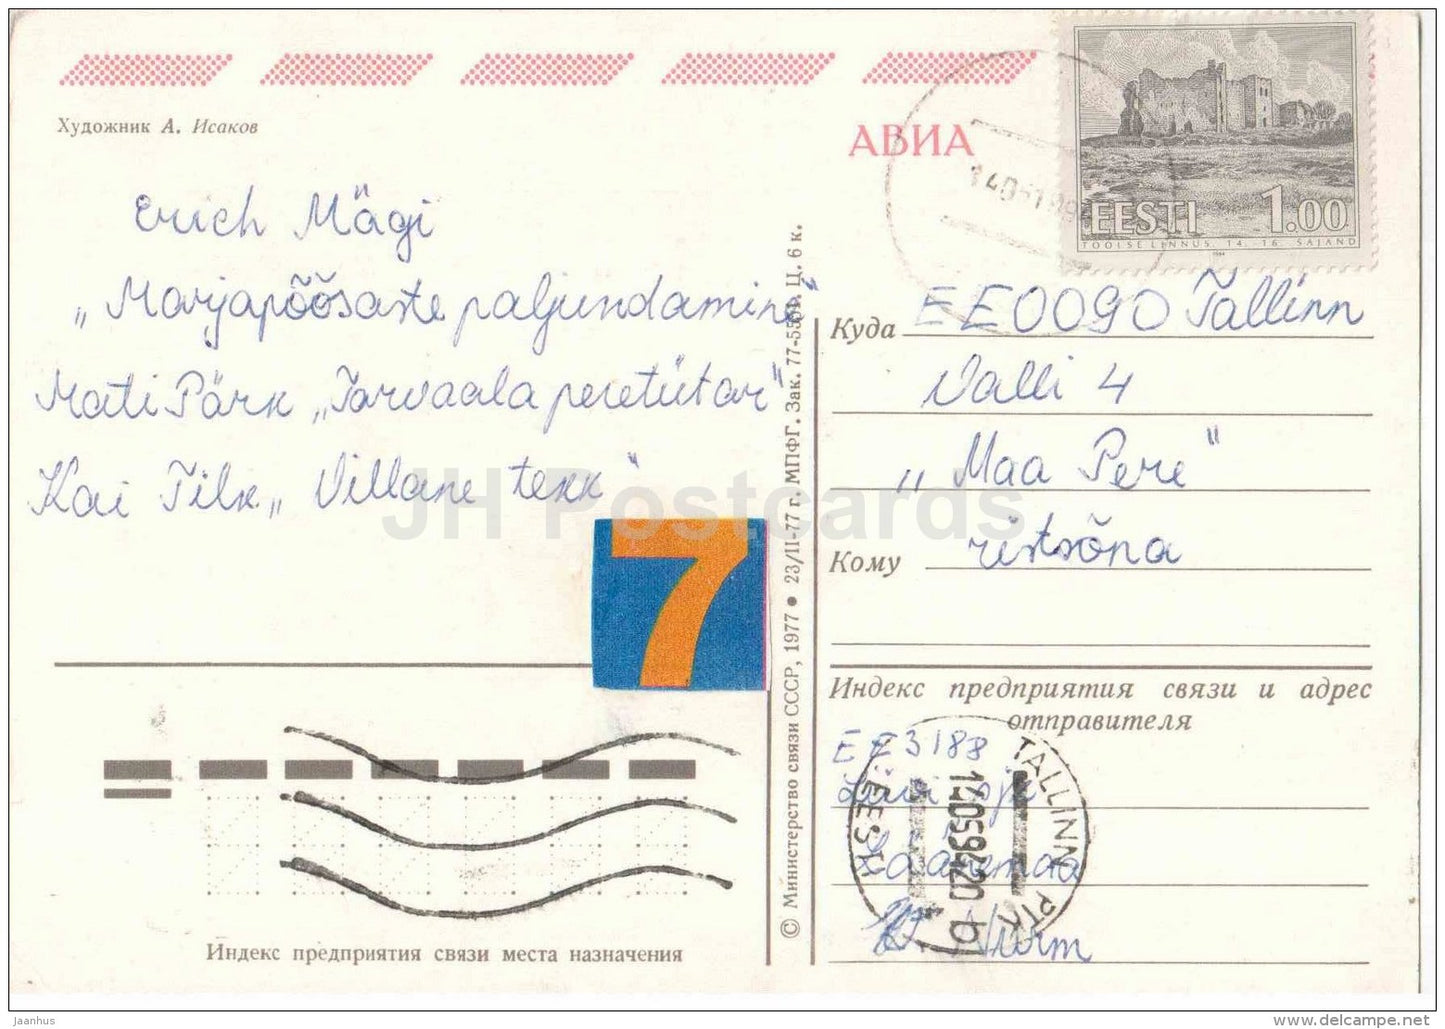 Художник А. Исаков
АВИА
EESTI 1.00
TOOLSE LINNUS. 14. - 16. SAJAND
1994
Erich Mägi
„Marjapõõsaste paljundamine"
Mati Pärk „Tarvaala peretütar"
Kai Tilk „Villane tekk"
7
© Министерство связи СССР, 1977 • 23/II-77 г. МПФГ. Зак. 77-5551. Ц. 6 к.
Куда EE0090 Tallinn
Valli 4
„Maa Pere"
Кому ristsõna
Индекс предприятия связи и адрес
отправителя
EE3188
Läänemaa
Nurm
TALLINN PTK
14059420
EESTI
b
Индекс предприятия связи места назначения
JH Postcards
Jaanhus
www.delcampe.net